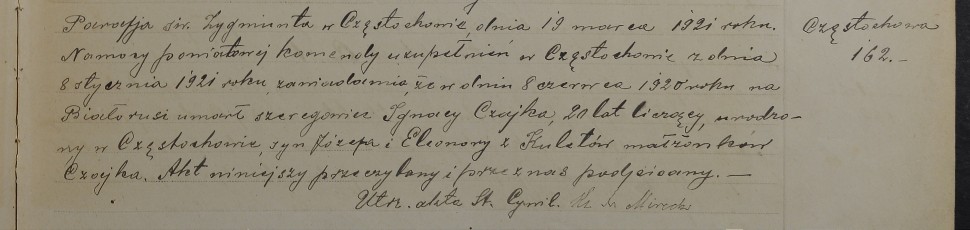 Parafja św. Zygmunta w Częstochowie, dnia 19 marca 1921 roku.
Częstochowa
162.—
Na mocy powiatowej komendy uzupełnień w Częstochowie z dnia
8 stycznia 1921 roku, zawiadamia, że w dniu 8 czerwca 1920 roku na
Białorusi umarł szeregowiec Ignacy Czajka, 20 lat liczący, urodzo-
ny w Częstochowie, syn Józefa i Eleonory z Kuletów małżonków
Czajka. Akt niniejszy przeczytany i przez nas podpisany. —
Utrz. akta St. Cywil. Ks. Mirecki